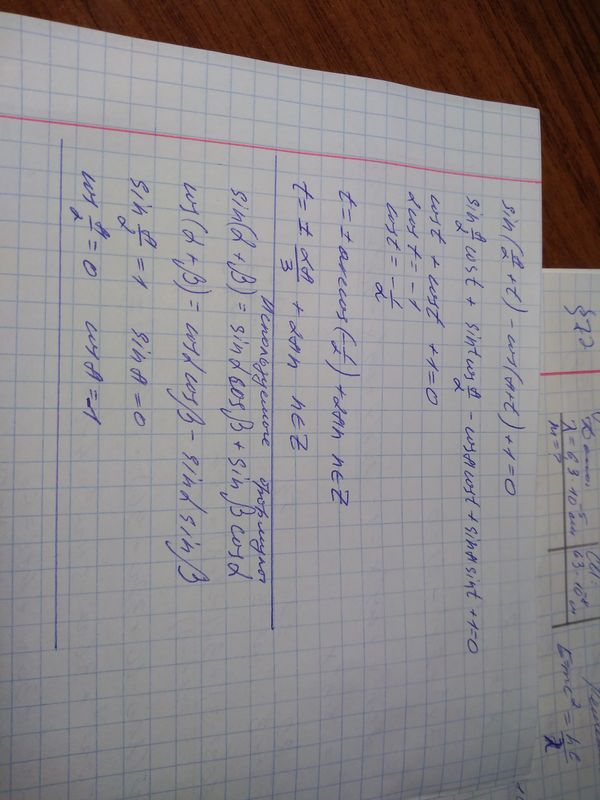 sin(π/2 + t) - cos(π + t) + 1 = 0
sin π/2 cost + sint cos π/2 - cosπ cost + sinπ sint + 1 = 0
cost + cost + 1 = 0
2cost = -1
cost = -1/2
t = ± arccos(-1/2) + 2πn n∈Z
t = ± 2π/3 + 2πn n∈Z
Используемые формулы
sin(α + β) = sinα cosβ + sinβ cosα
cos(α + β) = cosα cosβ - sinα sinβ
sin π/2 = 1 sinπ = 0
cos π/2 = 0 cosπ = -1
572
λ = 6,3 · 10⁻⁵ см
m = ?
E = mc² = hc/λ